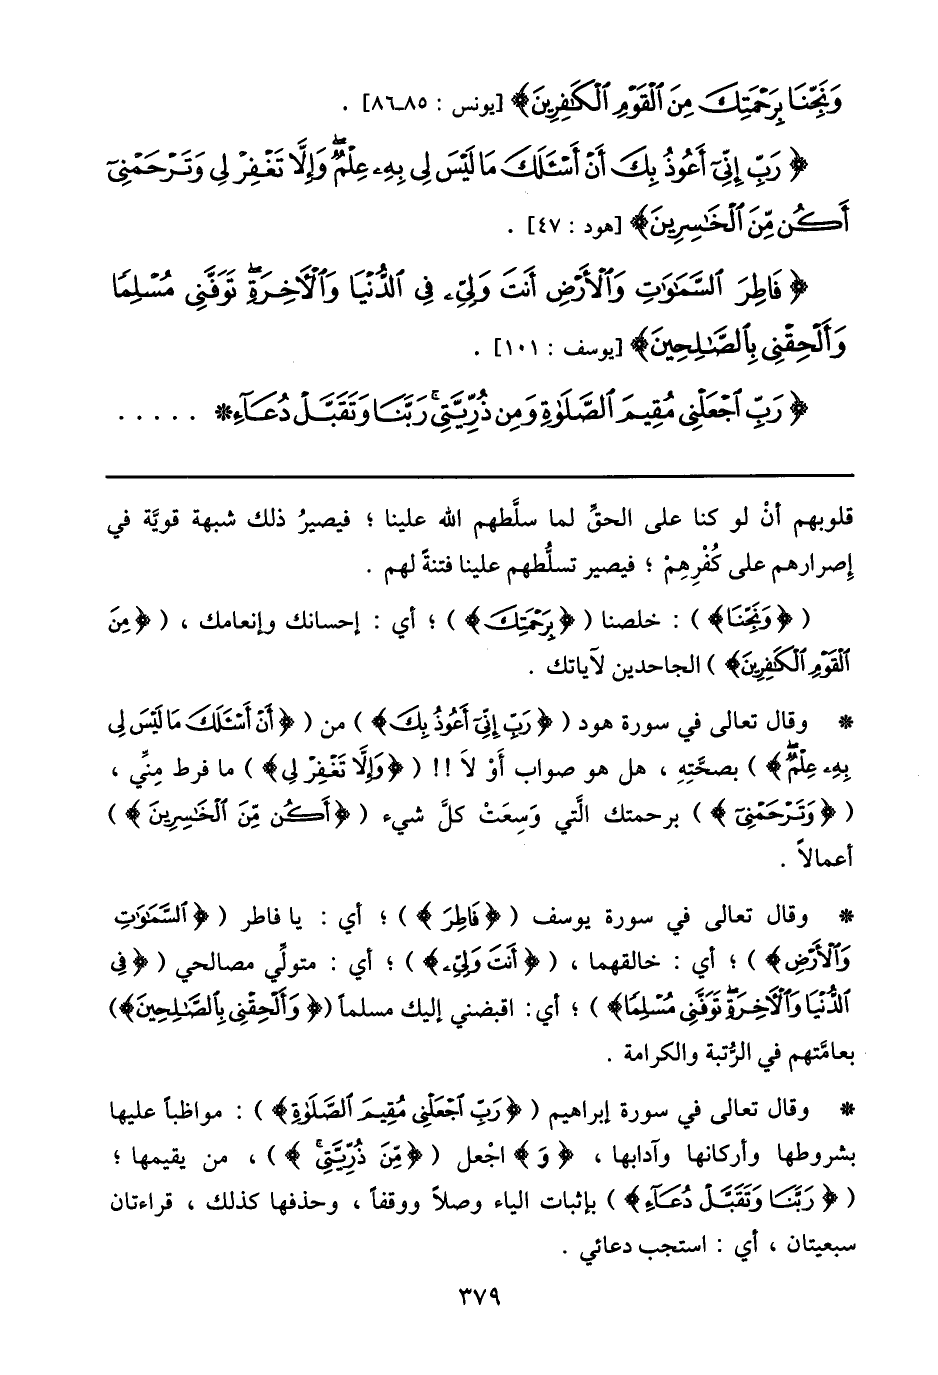 وَنَجِّنَا بِرَحْمَتِكَ مِنَ ٱلْقَوْمِ ٱلْكَٰفِرِينَ﴾ [يونس : ٨٥ـ٨٦] .
﴿ رَبِّ إِنِّىٓ أَعُوذُ بِكَ أَنْ أَسْـَٔلَكَ مَا لَيْسَ لِى بِهِۦ عِلْمٌۖ وَإِلَّا تَغْفِرْ لِى وَتَرْحَمْنِىٓ
أَكُن مِّنَ ٱلْخَٰسِرِينَ﴾ [هود : ٤٧] .
﴿ فَاطِرَ ٱلسَّمَٰوَٰتِ وَٱلْأَرْضِ أَنتَ وَلِىِّۦ فِى ٱلدُّنْيَا وَٱلْآخِرَةِۖ تَوَفَّنِى مُسْلِمًا
وَأَلْحِقْنِى بِٱلصَّٰلِحِينَ﴾ [يوسف : ١٠١] .
﴿ رَبِّ ٱجْعَلْنِى مُقِيمَ ٱلصَّلَوٰةِ وَمِن ذُرِّيَّتِىۚ رَبَّنَا وَتَقَبَّلْ دُعَآءِ* . . . . .
قلوبهم أنْ لو كنا على الحقِّ لما سلَّطهم الله علينا ؛ فيصيرُ ذلك شبهة قويَّة في
إصرارهم على كُفْرِهِمْ ؛ فيصير تسلُّطهم علينا فتنةً لهم .
( ﴿ وَنَجِّنَا﴾ ) : خلصنا ( ﴿ بِرَحْمَتِكَ﴾ ) ؛ أي : إحسانك وإنعامك ، ( ﴿ مِنَ
ٱلْقَوْمِ ٱلْكَٰفِرِينَ﴾ ) الجاحدين لآياتك .
* وقال تعالى في سورة هود ( ﴿ رَبِّ إِنِّىٓ أَعُوذُ بِكَ﴾ ) من ( ﴿ أَنْ أَسْـَٔلَكَ مَا لَيْسَ لِى
بِهِۦ عِلْمٌۖ ﴾ ) بصحَّتِهِ ، هل هو صواب أَوْ لاَ !! ( ﴿ وَإِلَّا تَغْفِرْ لِى﴾ ) ما فرط مِنِّي ،
( ﴿ وَتَرْحَمْنِىٓ ﴾ ) برحمتك الَّتي وَسِعَتْ كلَّ شيء ( ﴿ أَكُن مِّنَ ٱلْخَٰسِرِينَ ﴾ )
أعمالاً .
* وقال تعالى في سورة يوسف ( ﴿ فَاطِرَ ﴾ ) ؛ أي : يا فاطر ( ﴿ ٱلسَّمَٰوَٰتِ
وَٱلْأَرْضِ﴾ ) ؛ أي : خالقهما ، ( ﴿ أَنتَ وَلِىِّۦ﴾ ) ؛ أي : متولِّي مصالحي ( ﴿ فِى
ٱلدُّنْيَا وَٱلْآخِرَةِۖ تَوَفَّنِى مُسْلِمًا﴾ ) ؛ أي: اقبضني إليك مسلماً (﴿ وَأَلْحِقْنِى بِٱلصَّٰلِحِينَ﴾)
بعامَّتهم في الرُّتبة والكرامة .
* وقال تعالى في سورة إبراهيم ( ﴿ رَبِّ ٱجْعَلْنِى مُقِيمَ ٱلصَّلَوٰةِ﴾ ) : مواظباً عليها
بشروطها وأركانها وآدابها ، ﴿ وَ ﴾ اجْعل ( ﴿ مِّنَ ذُرِّيَّتِىۚ ﴾ ) ، من يقيمها ؛
( ﴿ رَبَّنَا وَتَقَبَّلْ دُعَآءِ﴾ ) بإثبات الياء وصلاً ووقفاً ، وحذفها كذلك ، قراءتان
سبعيتان ، أي : استجب دعائي .
٣٧٩